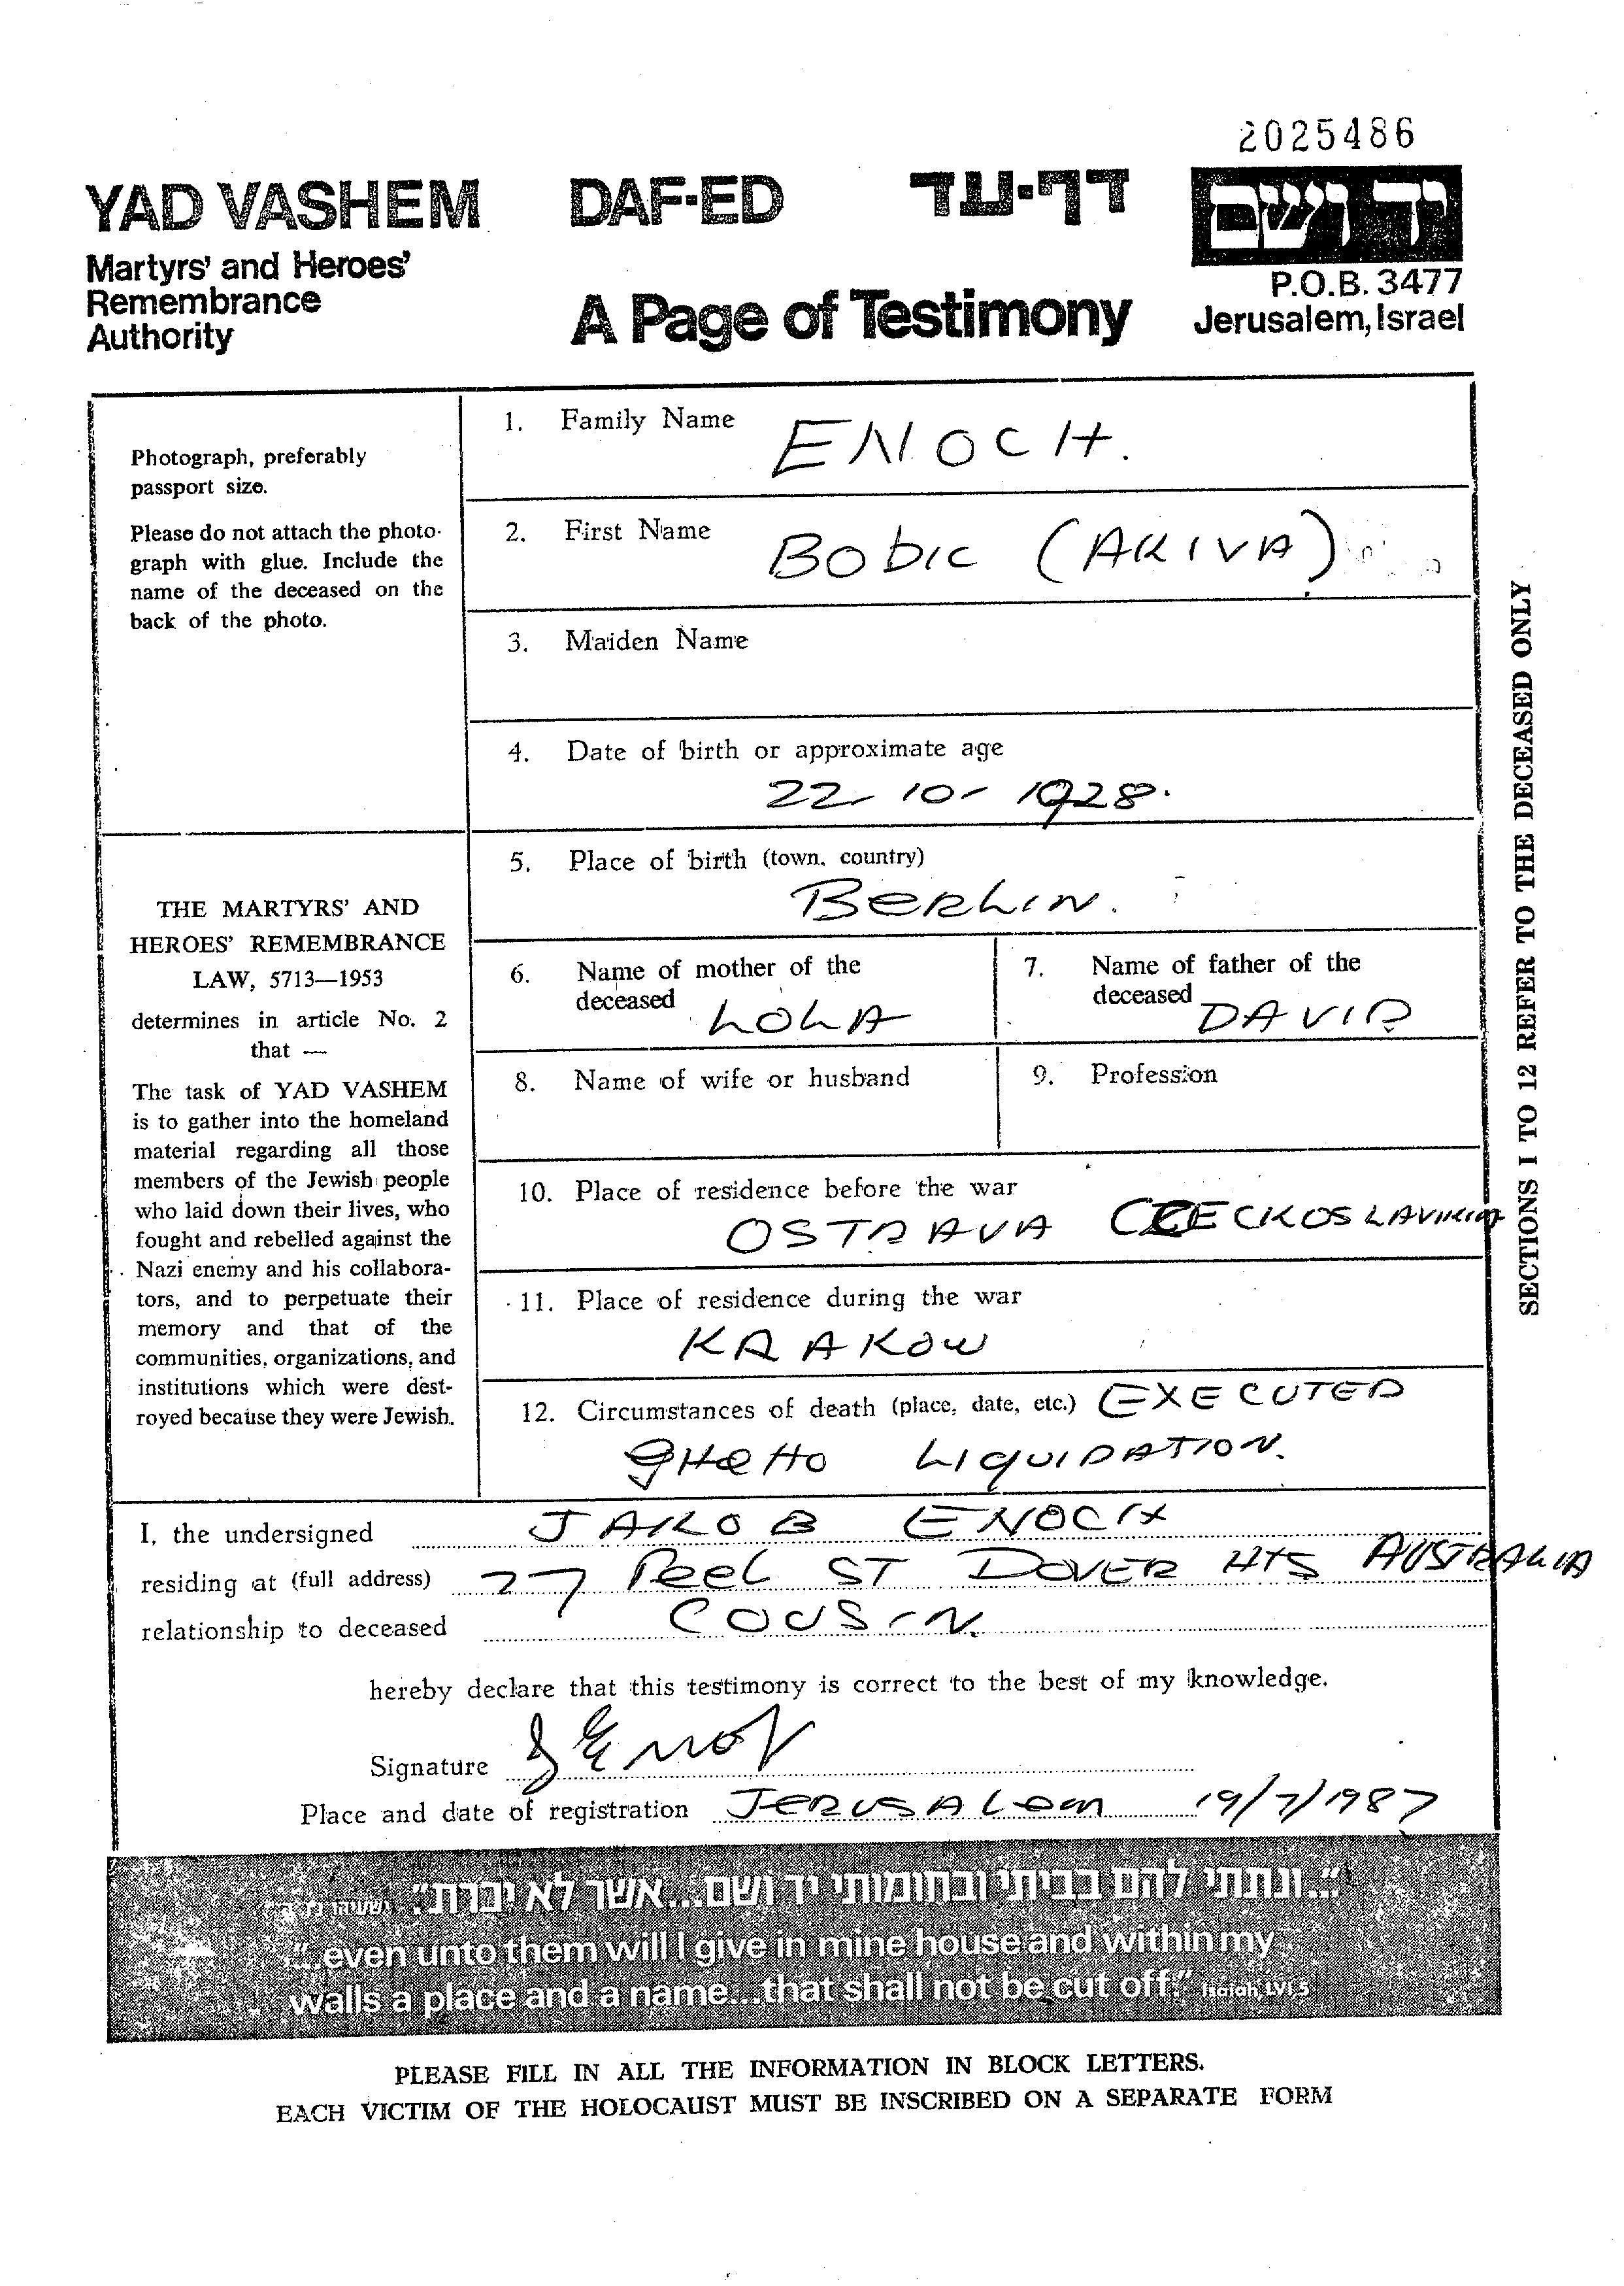 2025486
YAD VASHEM DAF-ED דף-עד ידושם
Martyrs' and Heroes'
Remembrance
Authority
A Page of Testimony
P.O.B. 3477
Jerusalem, Israel
Photograph, preferably
passport size.
Please do not attach the photo-
graph with glue. Include the
name of the deceased on the
back of the photo.
THE MARTYRS' AND
HEROES' REMEMBRANCE
LAW, 5713—1953
determines in article No. 2
that —
The task of YAD VASHEM
is to gather into the homeland
material regarding all those
members of the Jewish people
who laid down their lives, who
fought and rebelled against the
Nazi enemy and his collabora-
tors, and to perpetuate their
memory and that of the
communities, organizations, and
institutions which were dest-
royed because they were Jewish.
1. Family Name
ENOCH.
2. First Name
BOBIC (AKIVA)
3. Maiden Name
4. Date of birth or approximate age
22-10-1928.
5. Place of birth (town, country)
BERLIN.
6. Name of mother of the
deceased LOLA
7. Name of father of the
deceased DAVID
8. Name of wife or husband
9. Profession
10. Place of residence before the war
OSTRAVA
11. Place of residence during the war
KRAKOW
12. Circumstances of death (place, date, etc.) EXECUTED
GHETTO LIQUIDATION.
SECTIONS 1 TO 12 REFER TO THE DECEASED ONLY
I, the undersigned JAKOB ENOCH
residing at (full address) 27 Peel ST DOVER HTS AUSTRALIA
relationship to deceased COUSIN.
hereby declare that this testimony is correct to the best of my knowledge.
Signature
Place and date of registration JERUSALEM 19/7/1987
"...ונתתי להם בביתי ובחומותי יד ושם...אשר לא יכרת".
"...even unto them will I give in mine house and within my
walls a place and a name...that shall not be cut off." Isaiah, LVI,5
PLEASE FILL IN ALL THE INFORMATION IN BLOCK LETTERS.
EACH VICTIM OF THE HOLOCAUST MUST BE INSCRIBED ON A SEPARATE FORM